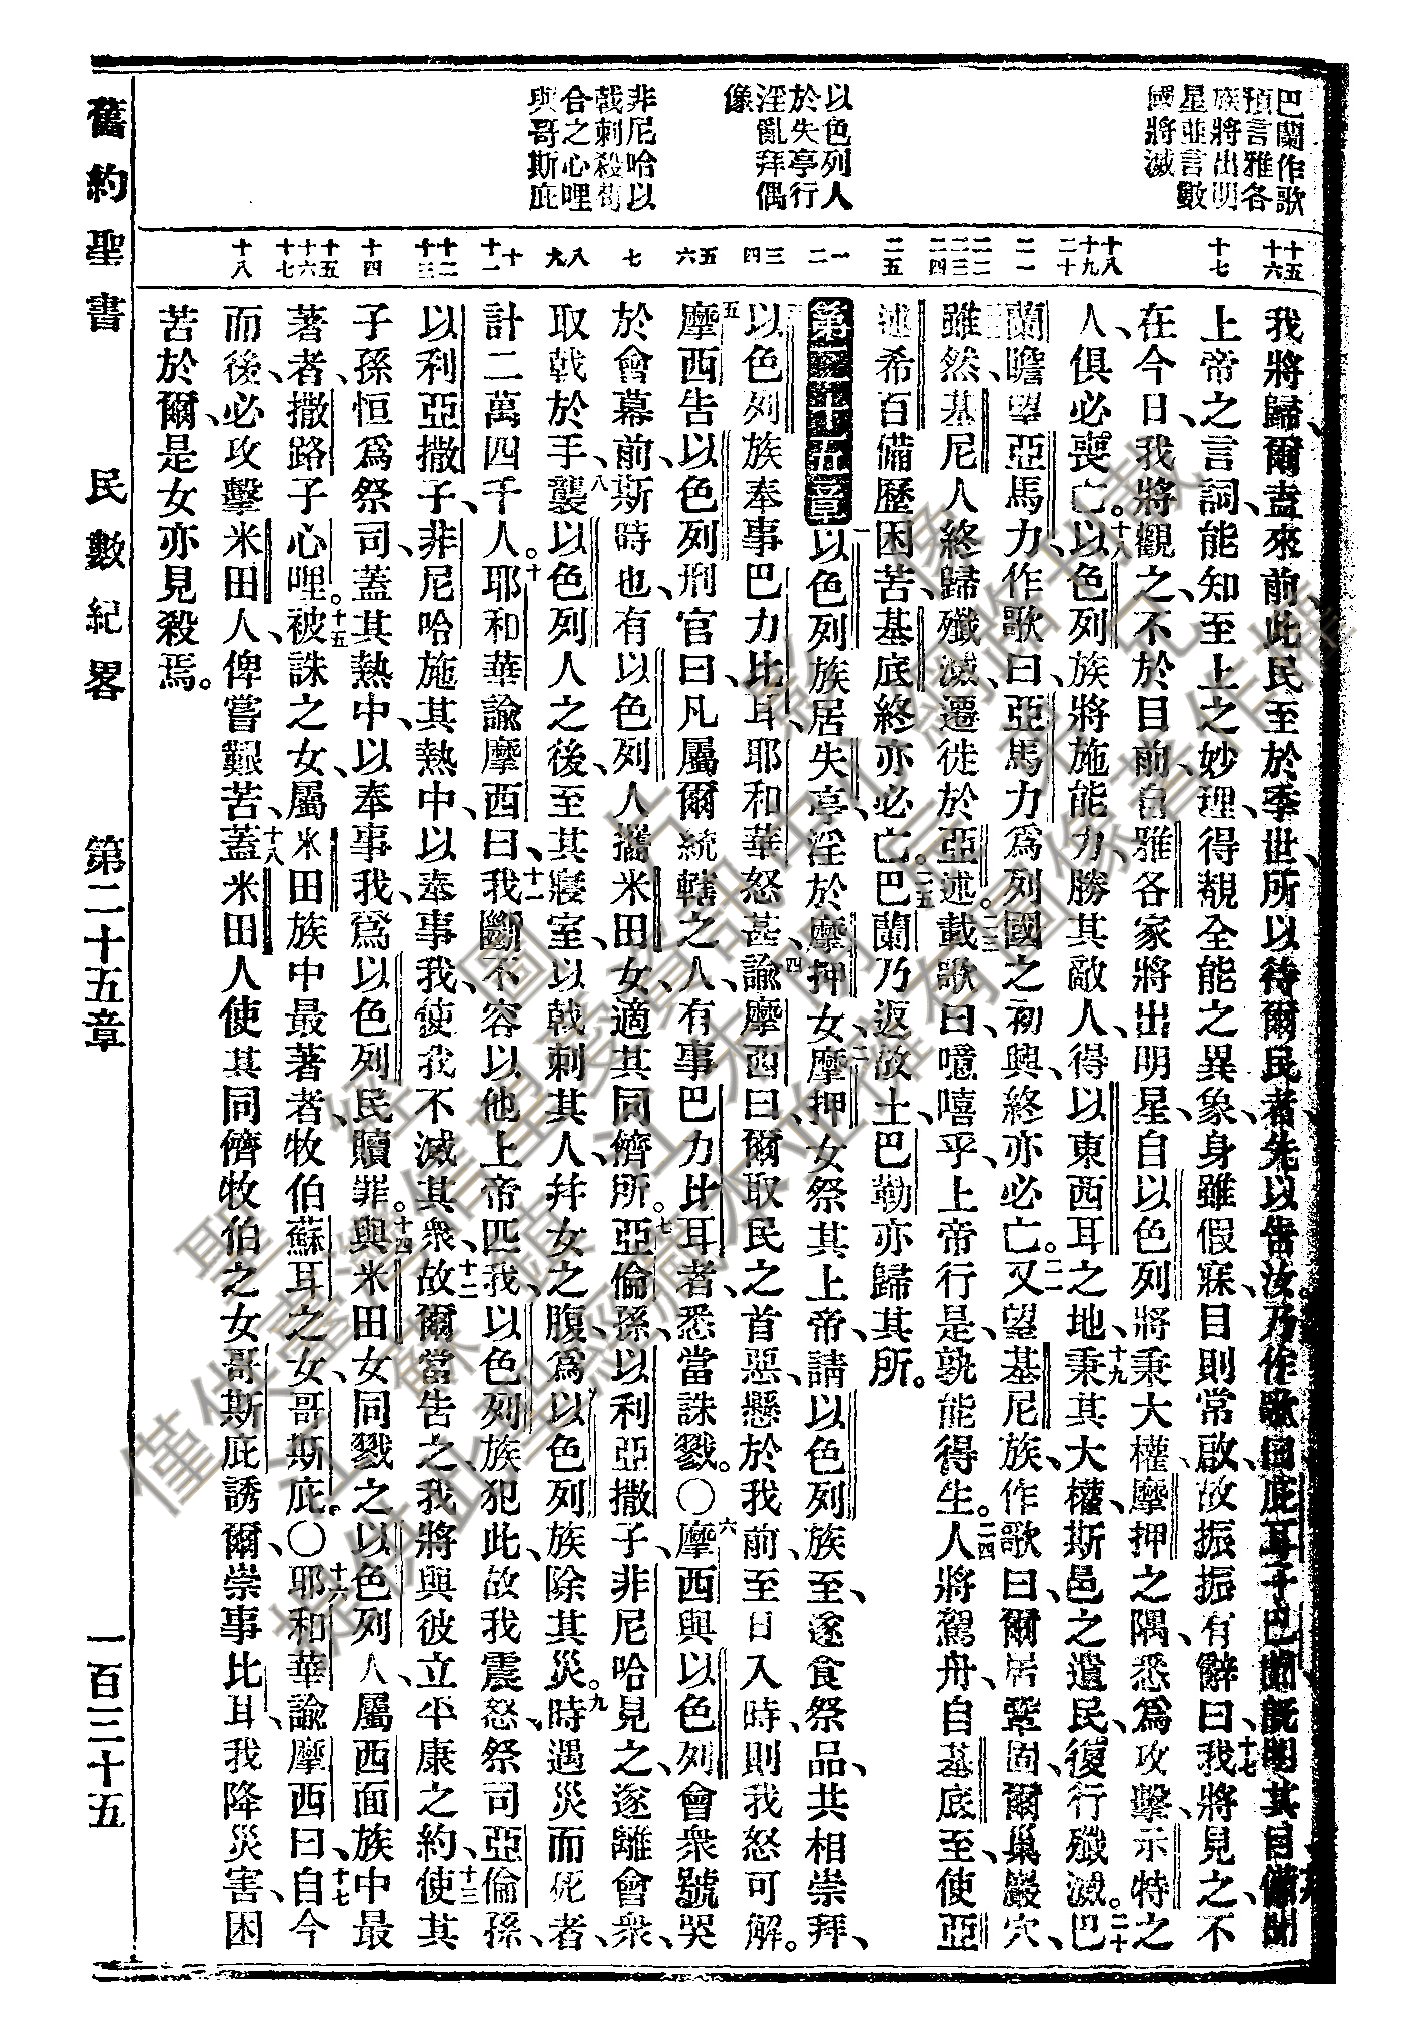 巴蘭作歌
預言雅各
族將出明
星並言數
國將滅
以色列人
於失亭行
淫亂拜偶
像
非尼哈以
戟刺殺荀
合之心哩
與哥斯庇
十五
十六
十七
十八
十九
二十
二一
二二
二三
二四
二五
一
二
三
四
五
六
七
八
九
十
十一
十二
十三
十四
十五
十六
十七
十八
我將歸爾盍來前此民至於季世、所以待爾民者、先以告汝、乃作歌曰、庇耳子巴蘭、既明其目、備聞
上帝之言詞、能知至上之妙理、得覩全能之異象、身雖假寐、目則常啟、故振振有辭曰、十七我將見之、不
在今日、我將觀之、不於目前、自雅各家將出明星、自以色列將秉大權、摩押之隅、悉爲攻擊、示特之
人、俱必喪亡。十八以色列族將施能力、勝其敵人、得以東西耳之地、十九秉其大權、斯邑之遺民、復行殲滅。二十巴
蘭瞻望亞馬力、作歌曰、亞馬力爲列國之初興、終亦必亡。二一又望基尼族、作歌曰、爾居鞏固、爾巢巖穴、
二二雖然、基尼人終歸殲滅、遷徙於亞述。二三載歌曰、噫嘻乎、上帝行是、孰能得生。二四人將駕舟、自基底至、使亞
述希百備歷困苦、基底終亦必亡。二五巴蘭乃返故土、巴勒亦歸其所。
第二十五章 一以色列族居失亭、淫於摩押女、二摩押女祭其上帝、請以色列族至、遂食祭品、共相崇拜、
三以色列族奉事巴力比耳、耶和華怒甚、四諭摩西曰、爾取民之首惡、懸於我前、至日入時、則我怒可解。
五摩西告以色列刑官曰、凡屬爾統轄之人、有事巴力比耳者、悉當誅戮。〇六摩西與以色列會衆號哭
於會幕前、斯時也、有以色列人攜米田女、適其同儕所。七亞倫孫、以利亞撒子、非尼哈見之、遂離會衆、
取戟於手、八襲以色列人之後、至其寢室、以戟刺其人、幷女之腹、爲以色列族除其災。九時遇災而死者、
計二萬四千人。十耶和華諭摩西曰、十一我斷不容以他上帝匹我、以色列族犯此、故我震怒、祭司亞倫孫、
以利亞撒子、非尼哈施其熱中、以奉事我、使我不滅其衆、十二故爾當告之、我將與彼立平康之約、十三使其
子孫恒爲祭司、蓋其熱中、以奉事我、爲以色列民贖罪。十四與米田女同戮之以色列人、屬西面族中最
著者、撒路子心哩。十五被誅之女、屬米田族中最著者、牧伯蘇耳之女、哥斯庇。〇十六耶和華諭摩西曰、十七自今
而後、必攻擊米田人、俾嘗艱苦、十八蓋米田人使其同儕牧伯之女哥斯庇誘爾、崇事比耳、我降災害、困
苦於爾、是女亦見殺焉。
舊約聖書 民數紀畧 第二十五章 一百三十五